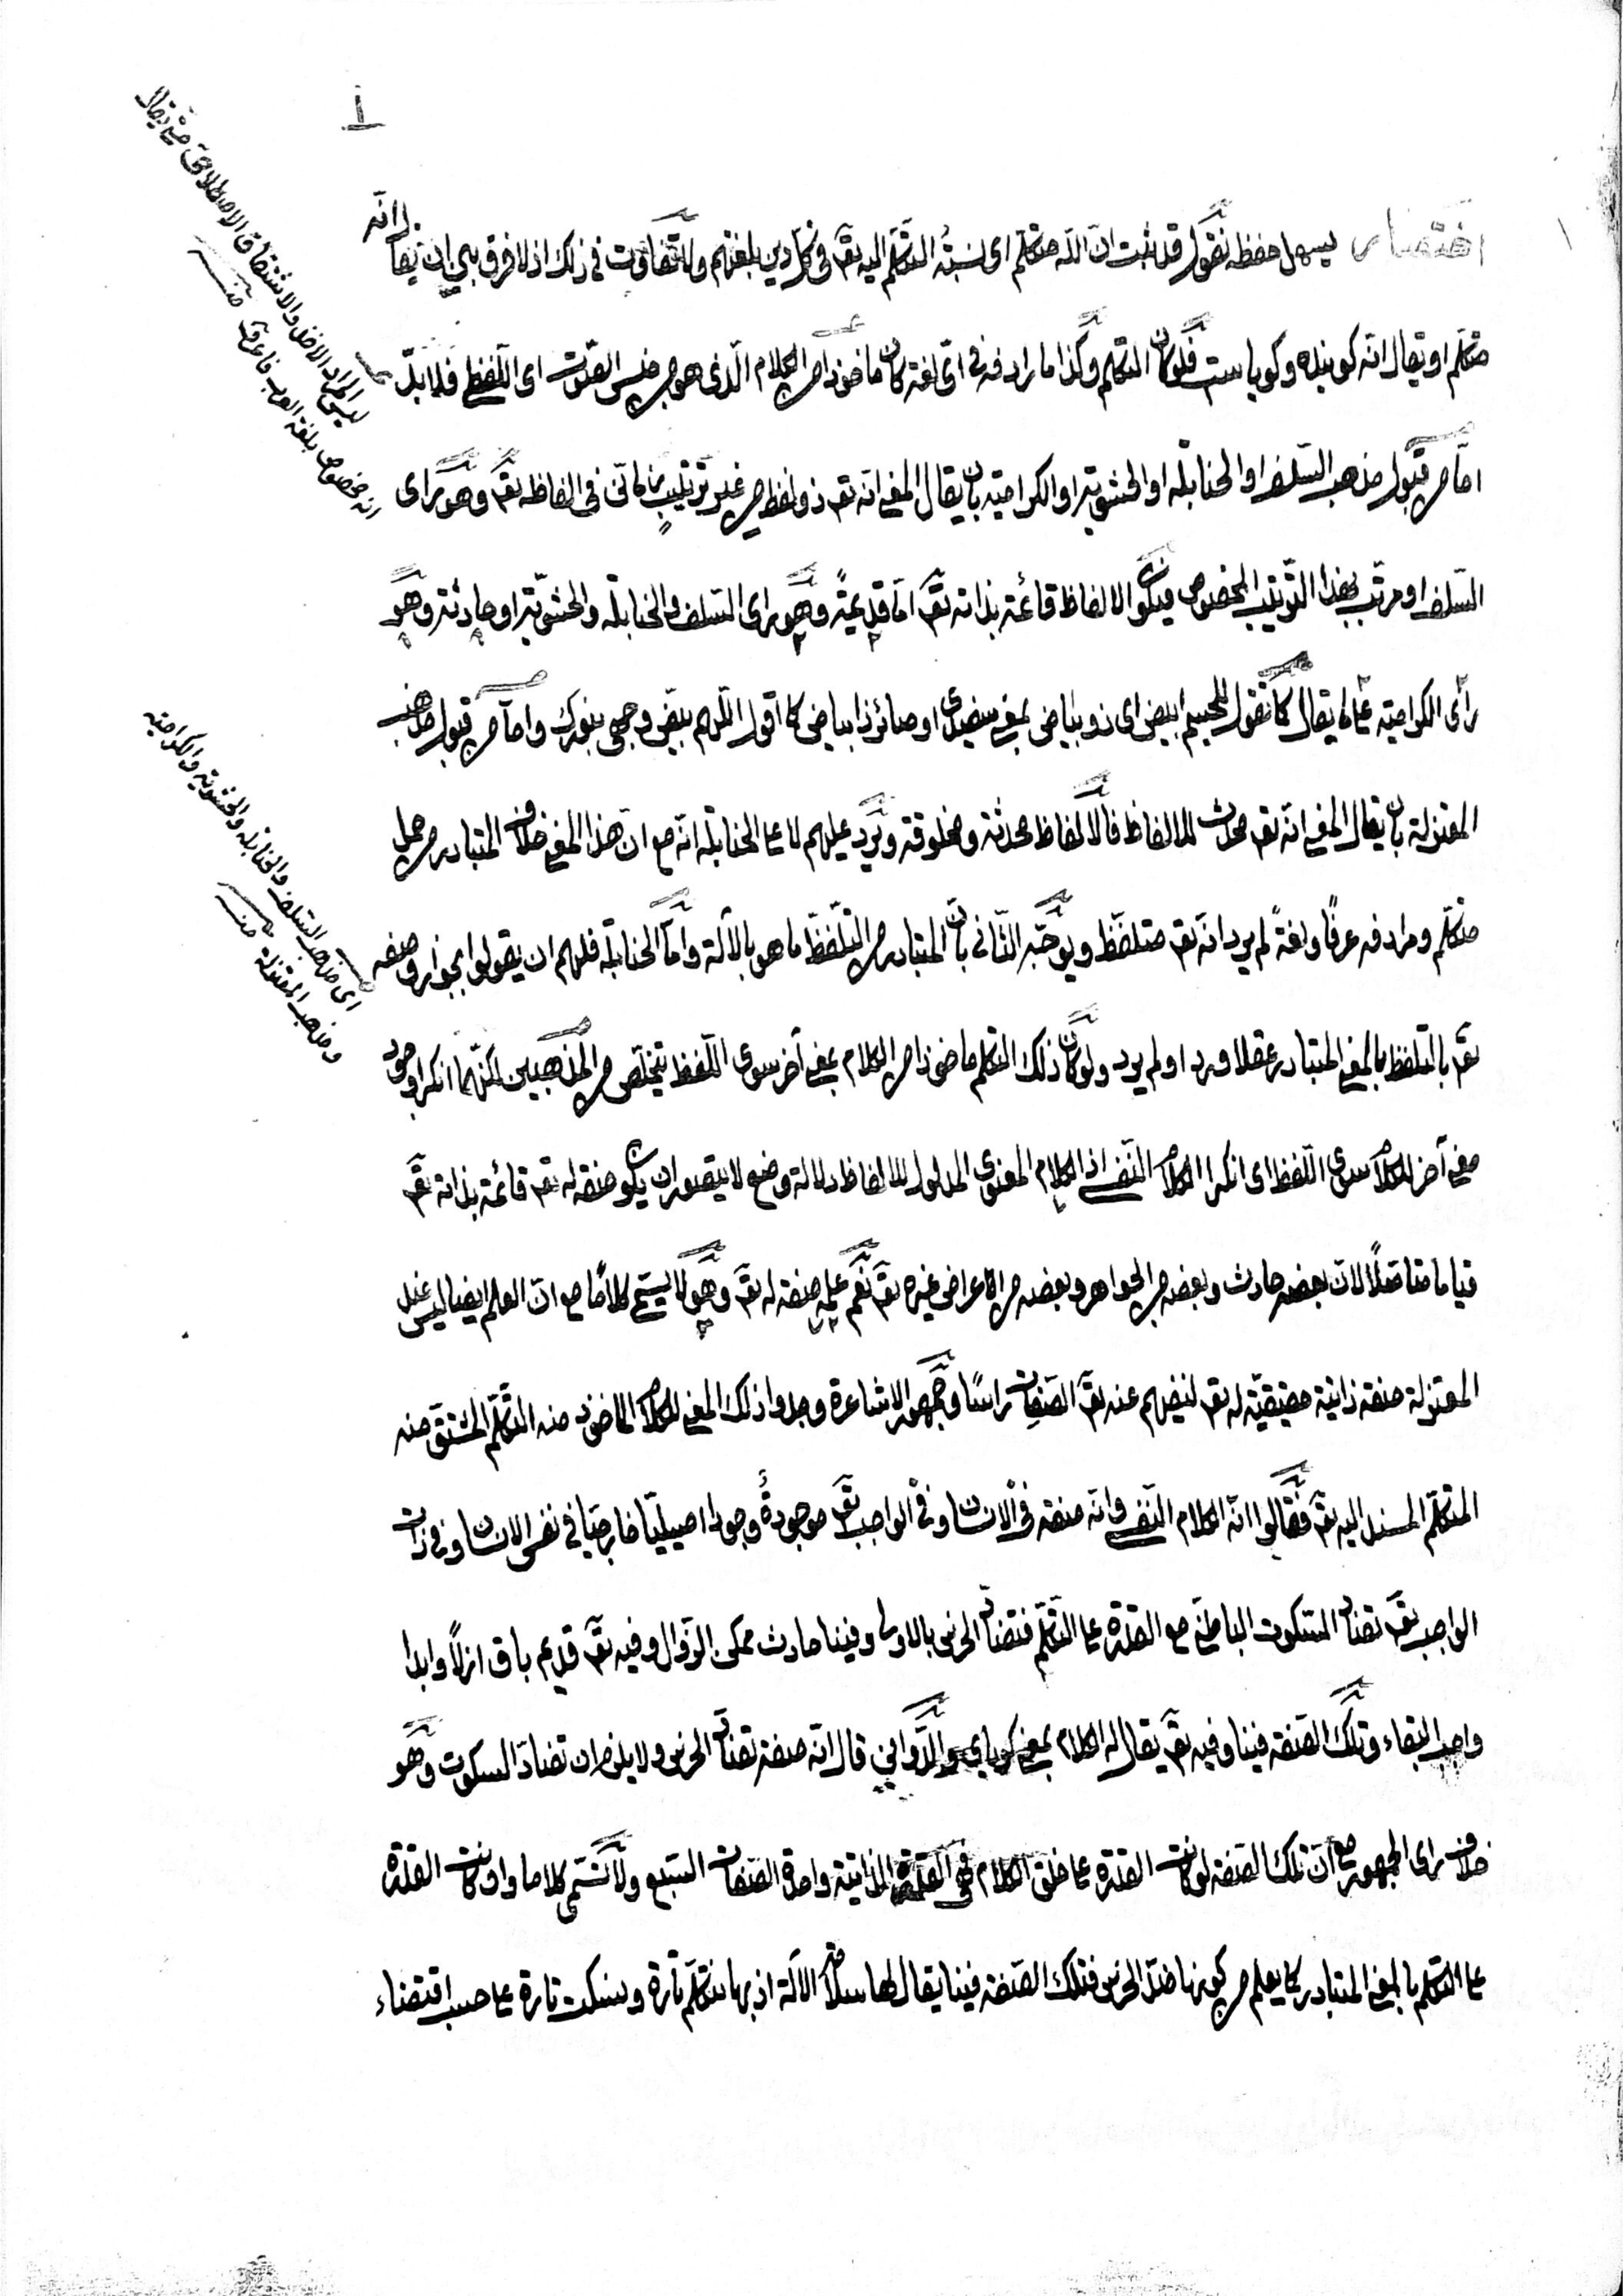 ١
اختصار يسهل حفظه نقول قد ثبت ان الله متكلم اى نسبة التكلم اليه تع فى كل دين بلغتهم ولا تفاوت فى ذلك اذ لا فرق بين ان يقال انه
متكلم او يقال انه كوينده وكوياست فلو كان المتكلم وكذا مرادفه فى اى لغة كان مأخوذا من الكلام الذى هو من جنس الصوت اى اللفظ فلا بد
اما من قبول مذهب السلف او الحنابلة او الحشوية او الكرامية بان يقال المعنى انه تع ذو لفظ من غير ترتيب زمانى فى الفاظه تع وهو راى
السلف او مرتب بهذا الترتيب المخصوص فيكون الالفاظ قائمة بذاته تع اما قديمة وهو راى السلف والحنابلة والحشوية او حادثة وهو
رأى الكرامية على ما يقال كما نقول للجسم ابيض اى ذو بياض بمعنى او صائر ذا بياض كما اقول اللهم بيض وجهى بنورك واما من قبول مذهب
المعتزلة بان يقال المعنى انه تع محدث للالفاظ فالالفاظ محدثة ومخلوقة ويرد عليهم لا على الحنابلة انه مع ان هذا المعنى خلاف المتبادر من حمل
متكلم ومرادفه عرفًا ولغةً لم يرد انه تع متلفظ ويوجه الثانى بان المتبادر من التلفظ ما هو بالآلة واما الحنابلة فلهم ان يقولوا بجواز وصفه
تع بالتلفظ بالمعنى المتبادر عقلا ورد او لم يرد ولو كان ذلك المتكلم مأخوذا من الكلام بمعنى آخر سوى اللفظ يتخلص من المذهبين لكنهما انكرا وجود
معنى آخر للكلام سوى اللفظ اى انكرا الكلام النفسى اذ الكلام المعنوى المدلول للالفاظ دلالة وضع لا يتصور ان يكون صفة له تع قائمة بذاته تع
قياما متأصلًا لان بعضه حادث وبعضه من الجواهر وبعضه من الاعراض غيره تع نعم علمه صفة له تع وهو لا يسمى كلامًا مع ان العلم ايضا ليس عند
المعتزلة صفة ذاتية حقيقية له تع لنفيهم عنه تع الصفات راسًا وجمهور الاشاعرة وجدوا ذلك المعنى للكلام المأخوذ منه المتكلم المشتق منه
المتكلم المسند اليه تع فقالوا انه الكلام النفسى وانه صفة فى الانسان وفى الواجب تع موجودة وجودا اصيليّا خارجيا فى نفس الانسان وفى ذات
الواجب تع تضاد السكوت الباطنى مع القدرة على التكلم فتضاد الخرس بالاولى وفينا حادث ممكن الزوال وفيه تع قديم باق ازلًا وابدا
واجب البقاء وتلك الصفة فينا وفيه تع يقال له الكلام بمعنى كوياى والدوانى قال انه صفة تضاد الخرس ولا يلزم ان تضاد السكوت وهو
خلاف راى الجمهور مع ان تلك الصفة لو كانت القدرة على خلق الكلام فهى القدرة الذاتية واحدة الصفات السبع ولا تسمى كلاما ولو كانت القدرة
على التكلم بالمعنى المتبادر كما يعلم من كونها ضد الخرس فتلك الصفة فينا يقال لها سلامة الآلة اذ بها نتكلم تارة ونسكت تارة على حسب اقتضاء
ليس المراد الاخذ والاشتقاق الاصطلاحى حتى يقال
انه مخصوص بلغة العرب فاعرف منه
اى مذهب السلف والحنابلة والحشوية والكرامية
ومذهب المعتزلة منه